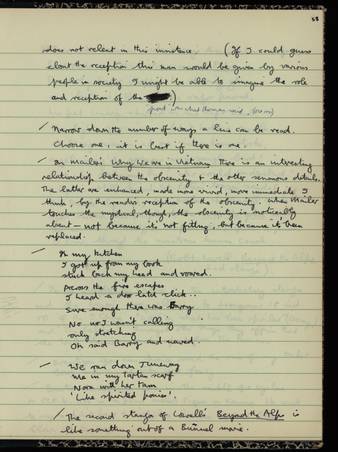 58
does not relent in this instance. (If I could guess
about the reception this man would be given by various
people in society I might be able to imagine the role
and reception of the
poet, in what Thomas said,
/ Narrow down the number of ways a line can be read.
Choose one, it is best if there is one.
/ On Mailer's Why Are we in Vietnam. There is an interesting
relationship between the obscenity & the other sensuous details.
The latter are enhanced, made more vivid, more immediate I
think, by the reader's reception of the obscenity. When Mailer
touches the mystical, though, the obscenity is noticeably
absent – not because it's not fitting, but because it's been
replaced.
/ In my kitchen
I got up from my book
stuck back my head and vowed.
Across the fire escapes
I heard a door latch click..
Sure enough there was Barry
No no I wasn't calling
only stretching
Oh said Barry and waved.
/ We ran down
me in my tartan scarf
Nora with her tam
'Like spirited ponies'.
/ The second stanza of Lowell's Beyond the Alps is
like something out of a Buñuel movie.